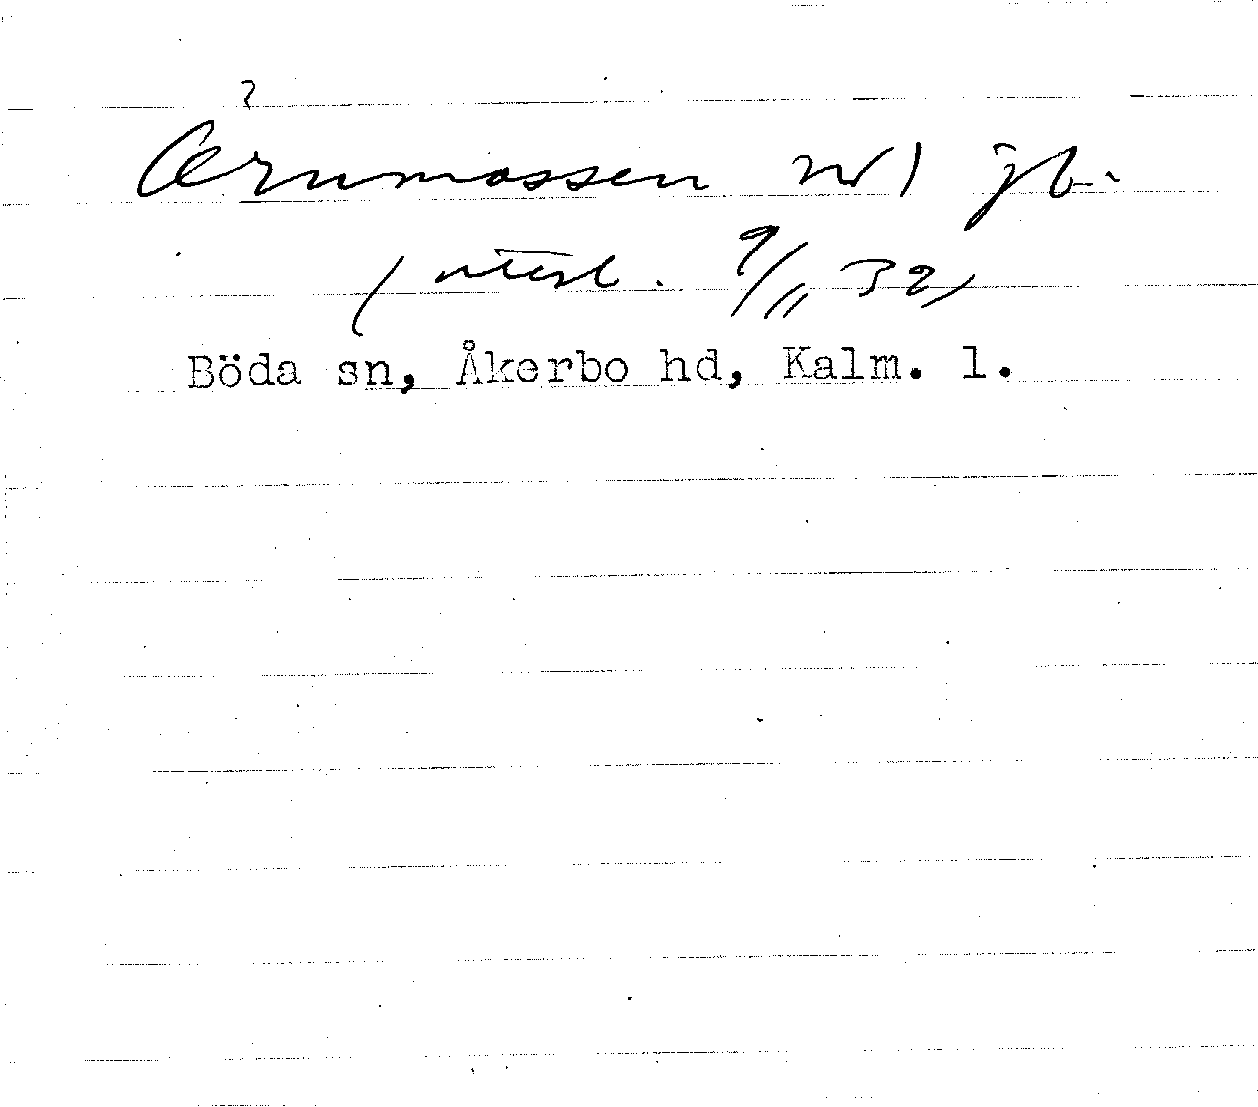 ?
Ærnmossen
( utesl. 9/11 32)
Böda sn, Åkerbo hd, Kalm. l.